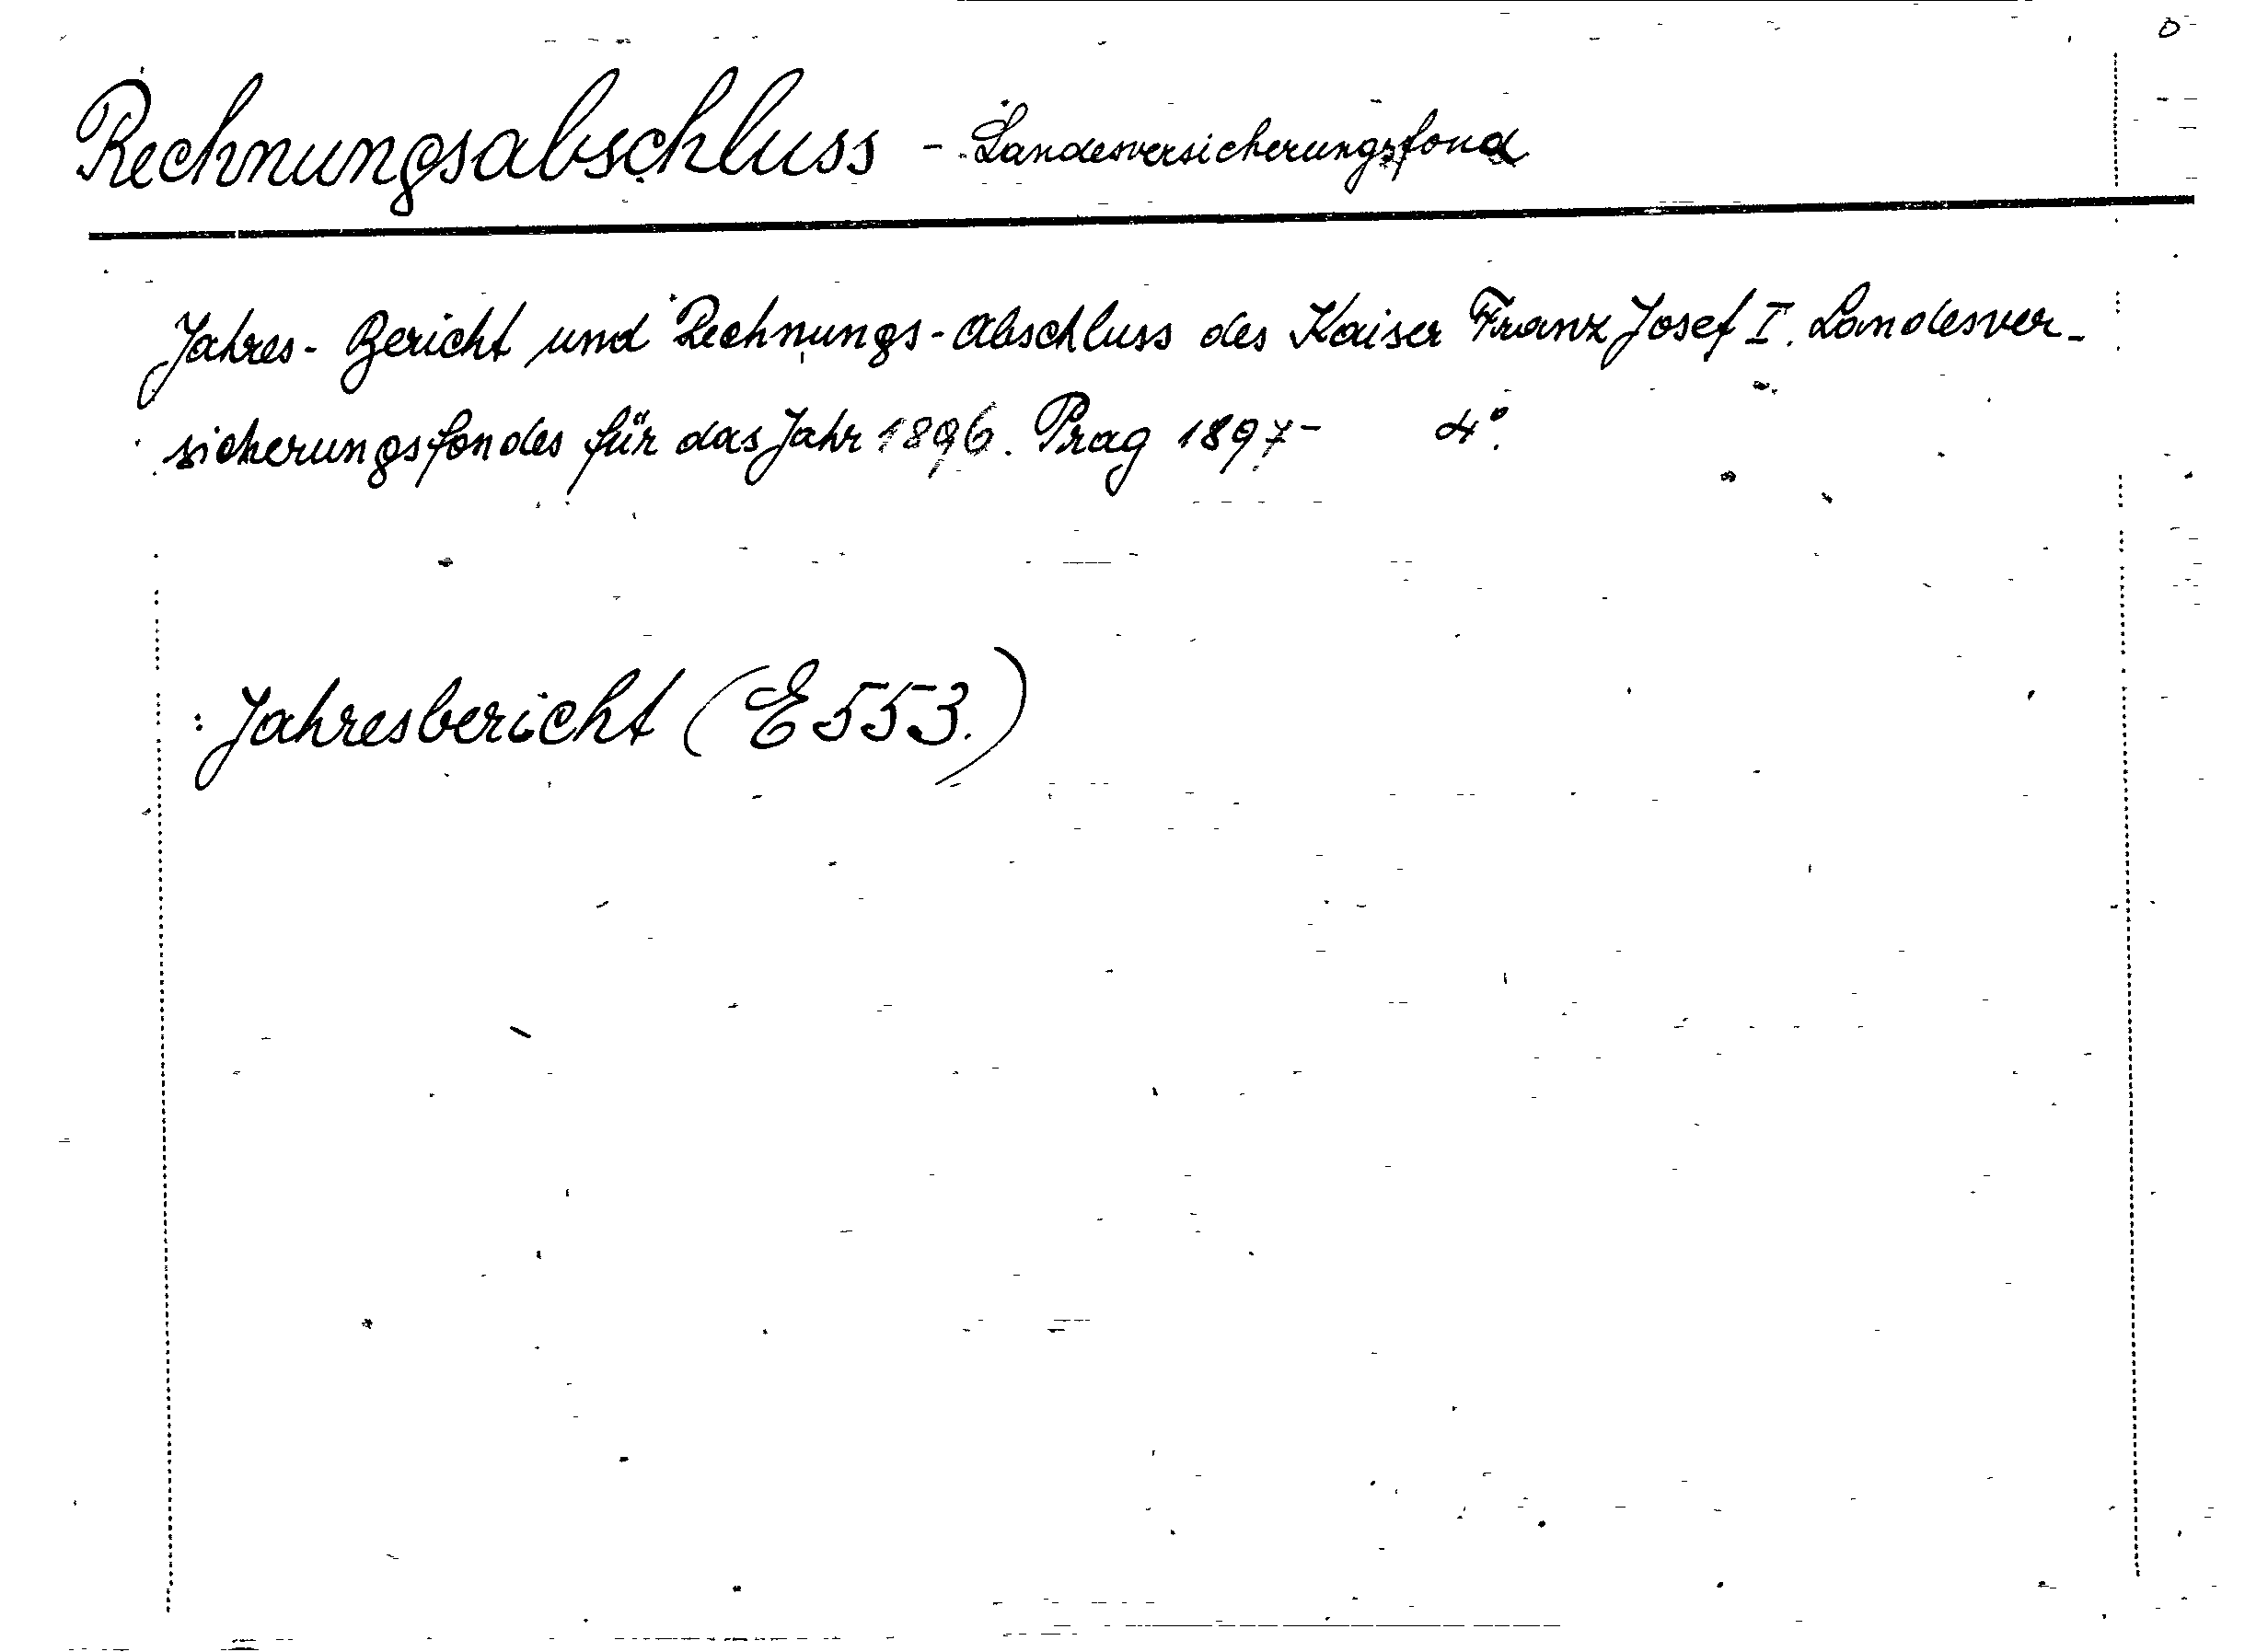 Rechnungsabschluss - Landesversicherungsfond
Jahres-Bericht und Rechnungs-Abschluss des Kaiser Franz Josef I. Landesver-
sicherungsfondes für das Jahr 1896. Prag 1897- 4°.
: Jahresbericht (E 553.)